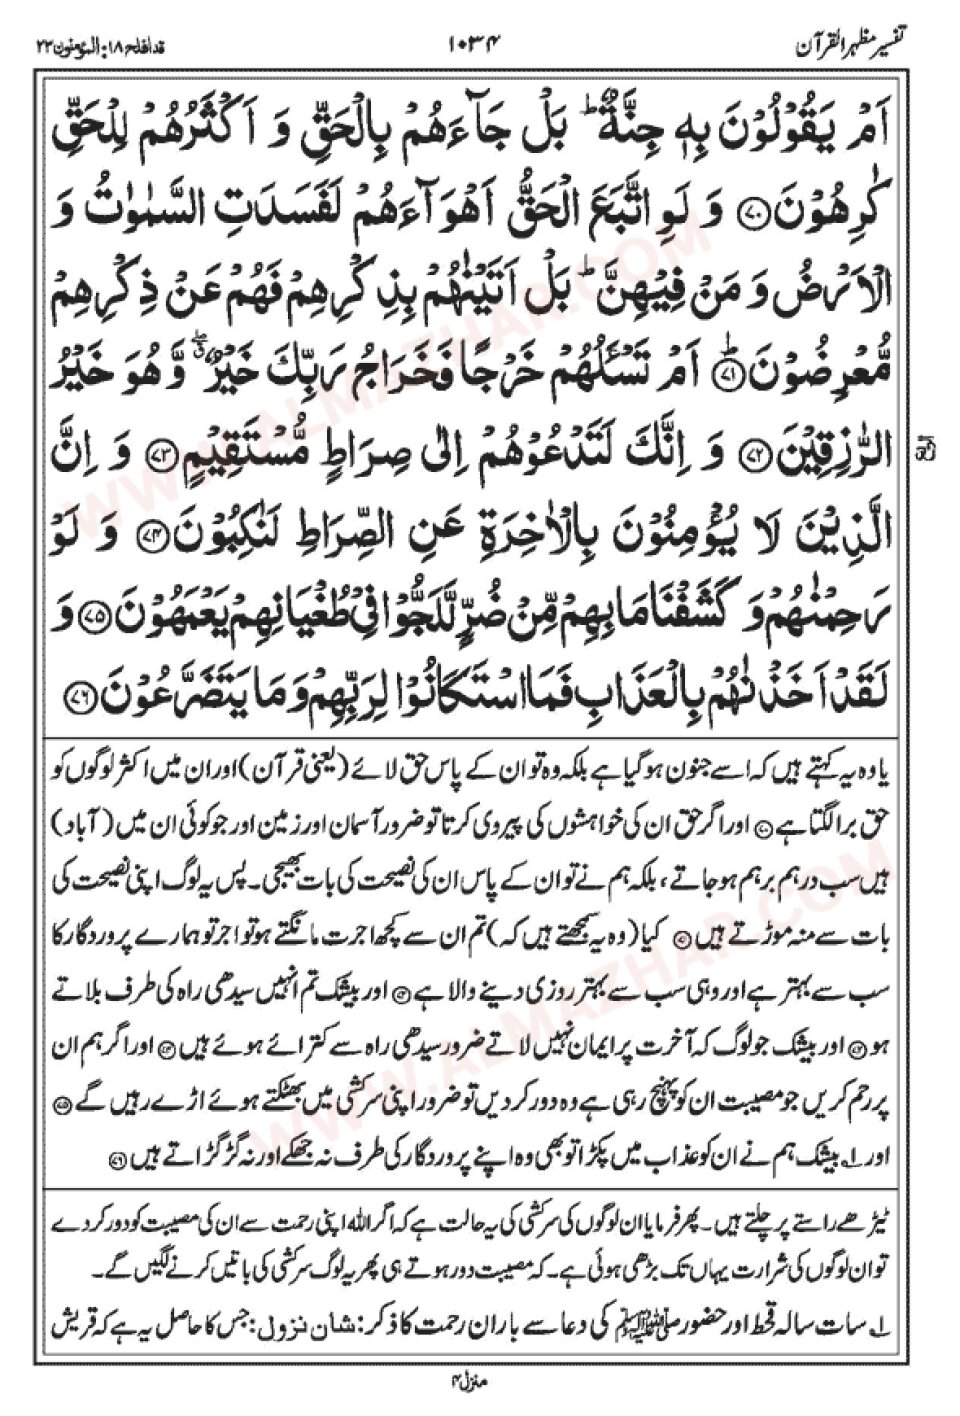 تفسیر مظہر القرآن
۱۰۳۴
قد افلح ۱۸: المؤمنون ۲۳
اَمْ یَقُوْلُوْنَ بِهٖ جِنَّةٌ ؕ بَلْ جَآءَهُمْ بِالْحَقِّ وَ اَكْثَرُهُمْ لِلْحَقِّ
كٰرِهُوْنَ ﴿۷۰﴾ وَ لَوِ اتَّبَعَ الْحَقُّ اَهْوَآءَهُمْ لَفَسَدَتِ السَّمٰوٰتُ وَ
الْاَرْضُ وَ مَنْ فِیْهِنَّ ؕ بَلْ اَتَیْنٰهُمْ بِذِكْرِهِمْ فَهُمْ عَنْ ذِكْرِهِمْ
مُّعْرِضُوْنَ ﴿ؕ۷۱﴾ اَمْ تَسْـَٔلُهُمْ خَرْجًا فَخَرَاجُ رَبِّكَ خَیْرٌ ۖۗ وَّ هُوَ خَیْرُ
الرّٰزِقِیْنَ ﴿۷۲﴾ وَ اِنَّكَ لَتَدْعُوْهُمْ اِلٰی صِرَاطٍ مُّسْتَقِیْمٍ ﴿۷۳﴾ وَ اِنَّ
الَّذِیْنَ لَا یُؤْمِنُوْنَ بِالْاٰخِرَةِ عَنِ الصِّرَاطِ لَنٰكِبُوْنَ ﴿۷۴﴾ وَ لَوْ
رَحِمْنٰهُمْ وَ كَشَفْنَا مَا بِهِمْ مِّنْ ضُرٍّ لَّلَجُّوْا فِیْ طُغْیَانِهِمْ یَعْمَهُوْنَ ﴿۷۵﴾ وَ
لَقَدْ اَخَذْنٰهُمْ بِالْعَذَابِ فَمَا اسْتَكَانُوْا لِرَبِّهِمْ وَ مَا یَتَضَرَّعُوْنَ ﴿۷۶﴾
یا وہ یہ کہتے ہیں کہ اسے جنون ہو گیا ہے بلکہ وہ تو ان کے پاس حق لائے (یعنی قرآن) اور ان میں اکثر لوگوں کو
حق برا لگتا ہے ﴿۷۰﴾ اور اگر حق ان کی خواہشوں کی پیروی کرتا تو ضرور آسمان اور زمین اور جو کوئی ان میں (آباد)
ہیں سب درہم برہم ہو جاتے، بلکہ ہم نے تو ان کے پاس ان کی نصیحت کی بات بھیجی۔ پس یہ لوگ اپنی نصیحت کی
بات سے منہ موڑتے ہیں ﴿۷۱﴾ کیا (وہ یہ سمجھتے ہیں کہ) تم ان سے کچھ اجرت مانگتے ہو تو اجر تو تمہارے پروردگار کا
سب سے بہتر ہے اور وہی سب سے بہتر روزی دینے والا ہے ﴿۷۲﴾ اور بیشک تم انہیں سیدھی راہ کی طرف بلاتے
ہو ﴿۷۳﴾ اور بیشک جو لوگ کہ آخرت پر ایمان نہیں لاتے ضرور سیدھی راہ سے کترائے ہوئے ہیں ﴿۷۴﴾ اور اگر ہم ان
پر رحم کریں جو مصیبت ان کو پہنچ رہی ہے وہ دور کر دیں تو ضرور اپنی سرکشی میں بھٹکتے ہوئے اڑے رہیں گے ﴿۷۵﴾
اور ۱؎ بیشک ہم نے ان کو عذاب میں پکڑا تو بھی وہ اپنے پروردگار کی طرف نہ جھکے اور نہ گڑگڑاتے ہیں ﴿۷۶﴾
ٹیڑھے راستے پر چلتے ہیں۔ پھر فرمایا ان لوگوں کی سرکشی کی یہ حالت ہے کہ اگر اللہ اپنی رحمت سے ان کی مصیبت کو دور کر دے
تو ان لوگوں کی شرارت یہاں تک بڑھی ہوئی ہے۔ کہ مصیبت دور ہوتے ہی پھر یہ لوگ سرکشی کی باتیں کرنے لگیں گے۔
۱؎ سات سالہ قحط اور حضور ﷺ کی دعا سے باران رحمت کا ذکر: شان نزول: جس کا حاصل یہ ہے کہ قریش
منزل ۴
WWW.ALMAZHAR.COM
WWW.ALMAZHAR.COM